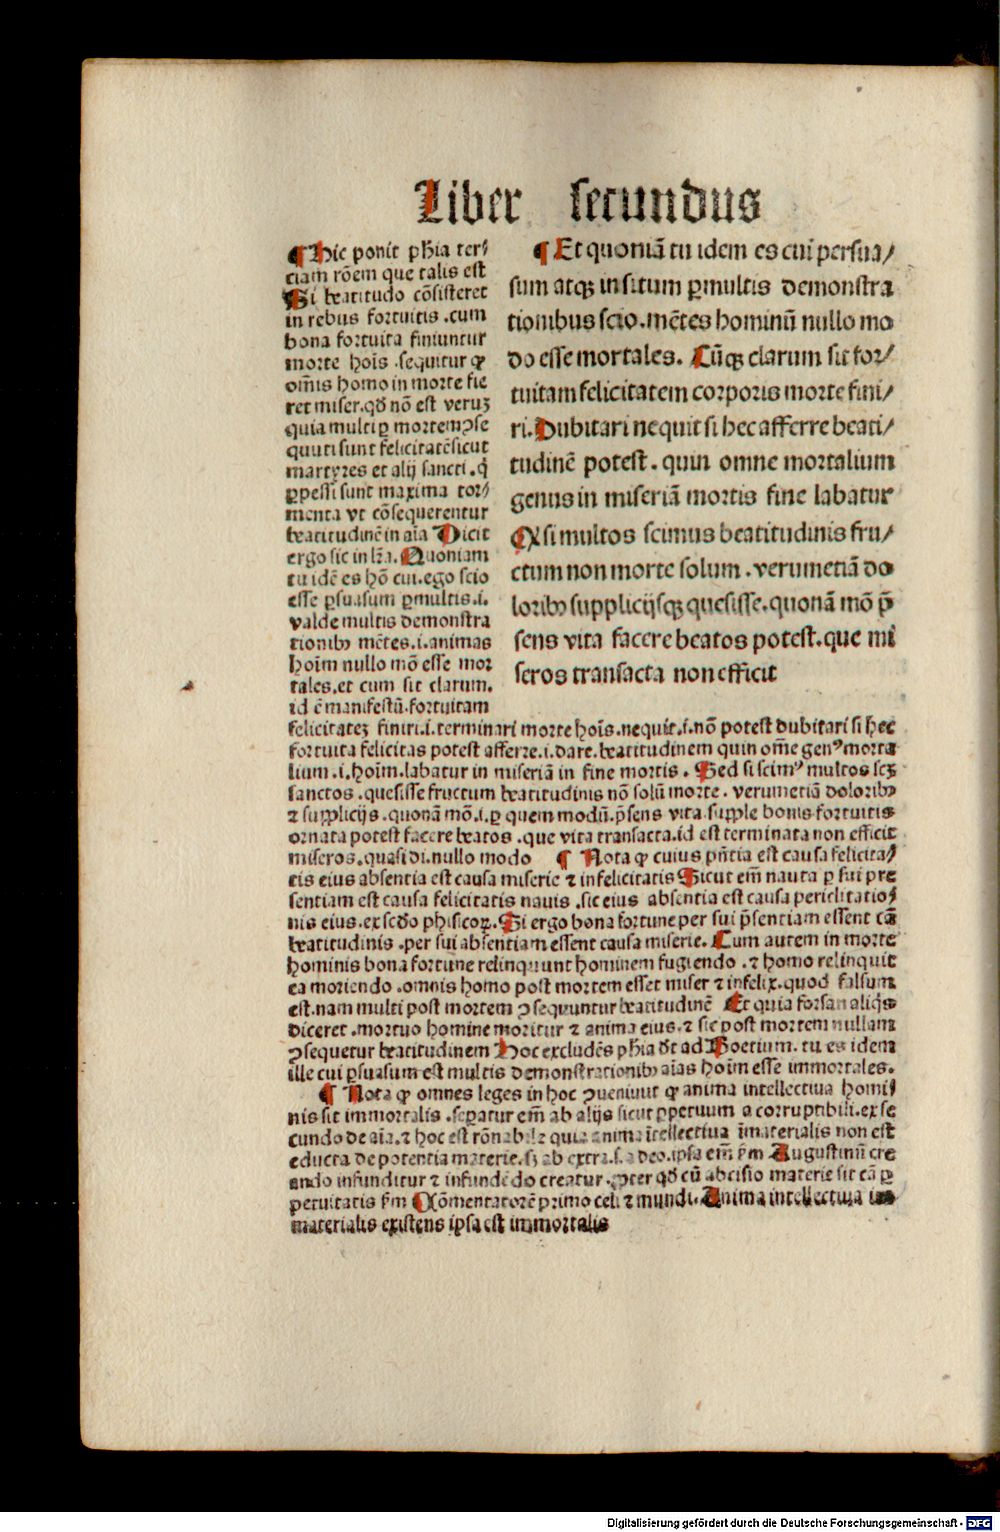 Liber secundus
¶ Et quoniā tu idem es cui persua⸗
sum atqꝫ insitum ꝑmultis demonstra
tionibus scio. mētes hominū nullo mo
do esse mortales. Cūqꝫ clarum sit for⸗
tuitam felicitatem corporis morte fini⸗
ri. Dubitari nequit si hec afferre beati⸗
tudinē potest. quin omne mortalium
genus in miseriā mortis fine labatur
Qꝛ si multos scimus beatitudinis fru⸗
ctum non morte solum. verumetiā do
loribꝰ supplicijsqꝫ quesisse. quonā mō p̄
sens vita facere beatos potest. que mi
seros transacta non efficit
¶ Hic ponit phīa ter⸗
ciam rōem que talis est
Si beatitudo cōsisteret
in rebus fortuitis. cum
bona fortuita finiuntur
morte hoīs. sequitur ꝙ
om̄is homo in morte fie
ret miser. qd̄ nō est veruꝫ
quia multi ꝑ mortem ꝯse
quuti sunt felicitatē sicut
martyres et alij sancti. q̇
ꝑpessi sunt maxima tor⸗
menta vt cōsequerentur
beatitudinē in aīa Dicit
ergo sic in lr̄a. Quoniam
tu idē es hō cui. ego scio
esse ꝑsuasum ꝑmultis .i.
valde multis demonstra
tionibꝰ mētes .i. animas
hoīm nullo mō esse mor
tales. et cum sit clarum.
id ē manifestū. fortuitam
felicitateꝫ finiri .i. terminari morte hoīs. nequit .i. nō potest dubitari si hec
fortuita felicitas potest afferre .i. dare. beatitudinem quin om̄e genꝰ morta
lium .i. hoīm. labatur in miseriā in fine mortis. Sed si scimꝰ multos scꝫ
sanctos. quesisse fructum beatitudinis nō solū morte. verumetiā doloribꝰ
⁊ supplicijs. quonā mō .i. ꝑ quem modū. p̄sens vita. supple bonis fortuitis
ornata potest facere beatos. que vita transacta. id est terminata non efficit
miseros. quasi di. nullo modo ¶ Nota ꝙ cuius pn̄tia est causa felicita⸗
tis eius absentia est causa miserie ⁊ infelicitatis Sicut em̄ nauta ꝑ sui pre
sentiam est causa felicitatis nauis. sic eius absentia est causa periclitatio⸗
nis eius. ex scd̄o phisicoꝝ. Si ergo bona fortune per sui p̄sentiam essent cā
beatitudinis. per sui absentiam essent causa miserie. Cum autem in morte
hominis bona fortune relinquunt hominem fugiendo. ⁊ homo relinquit
ea moriendo. omnis homo post mortem esset miser ⁊ infelix. quod falsum
est. nam multi post mortem ꝯsequuntur beatitudinē Et quia forsan aliq̇s
diceret. mortuo homine moritur ⁊ anima eius. ⁊ sic post mortem nullam
ꝯsequetur beatitudinem Hoc excludēs phīa d̄t ad Boetium. tu es idem
ille cui ꝑsuasum est multis demonstrationibꝰ aīas hoīm esse immortales.
¶ Nota ꝙ omnes leges in hoc ꝯueniūt ꝙ anima intellectiua homi⸗
nis sit immortalis. seꝑatur em̄ ab alijs sicut ꝑpetuum a corruptibili. ex se
cundo de aīa. ⁊ hoc est rōnabile quia anima ītellectiua īmaterialis non est
educta de potentia materie. sꝫ ab extra. s. a deo. ipsa em̄ ẜm Augustinū cre
ando infunditur ⁊ infundēdo creatur. ꝓpter qd̄ cū abcisio materie sit cā ꝑ
petuitatis ẜm Cōmentatorē primo celi ⁊ mundi. Anima intellectiua im
materialis existens ipsa est immortalis
Digitalisierung gefördert durch die Deutsche Forschungsgemeinschaft - DFG